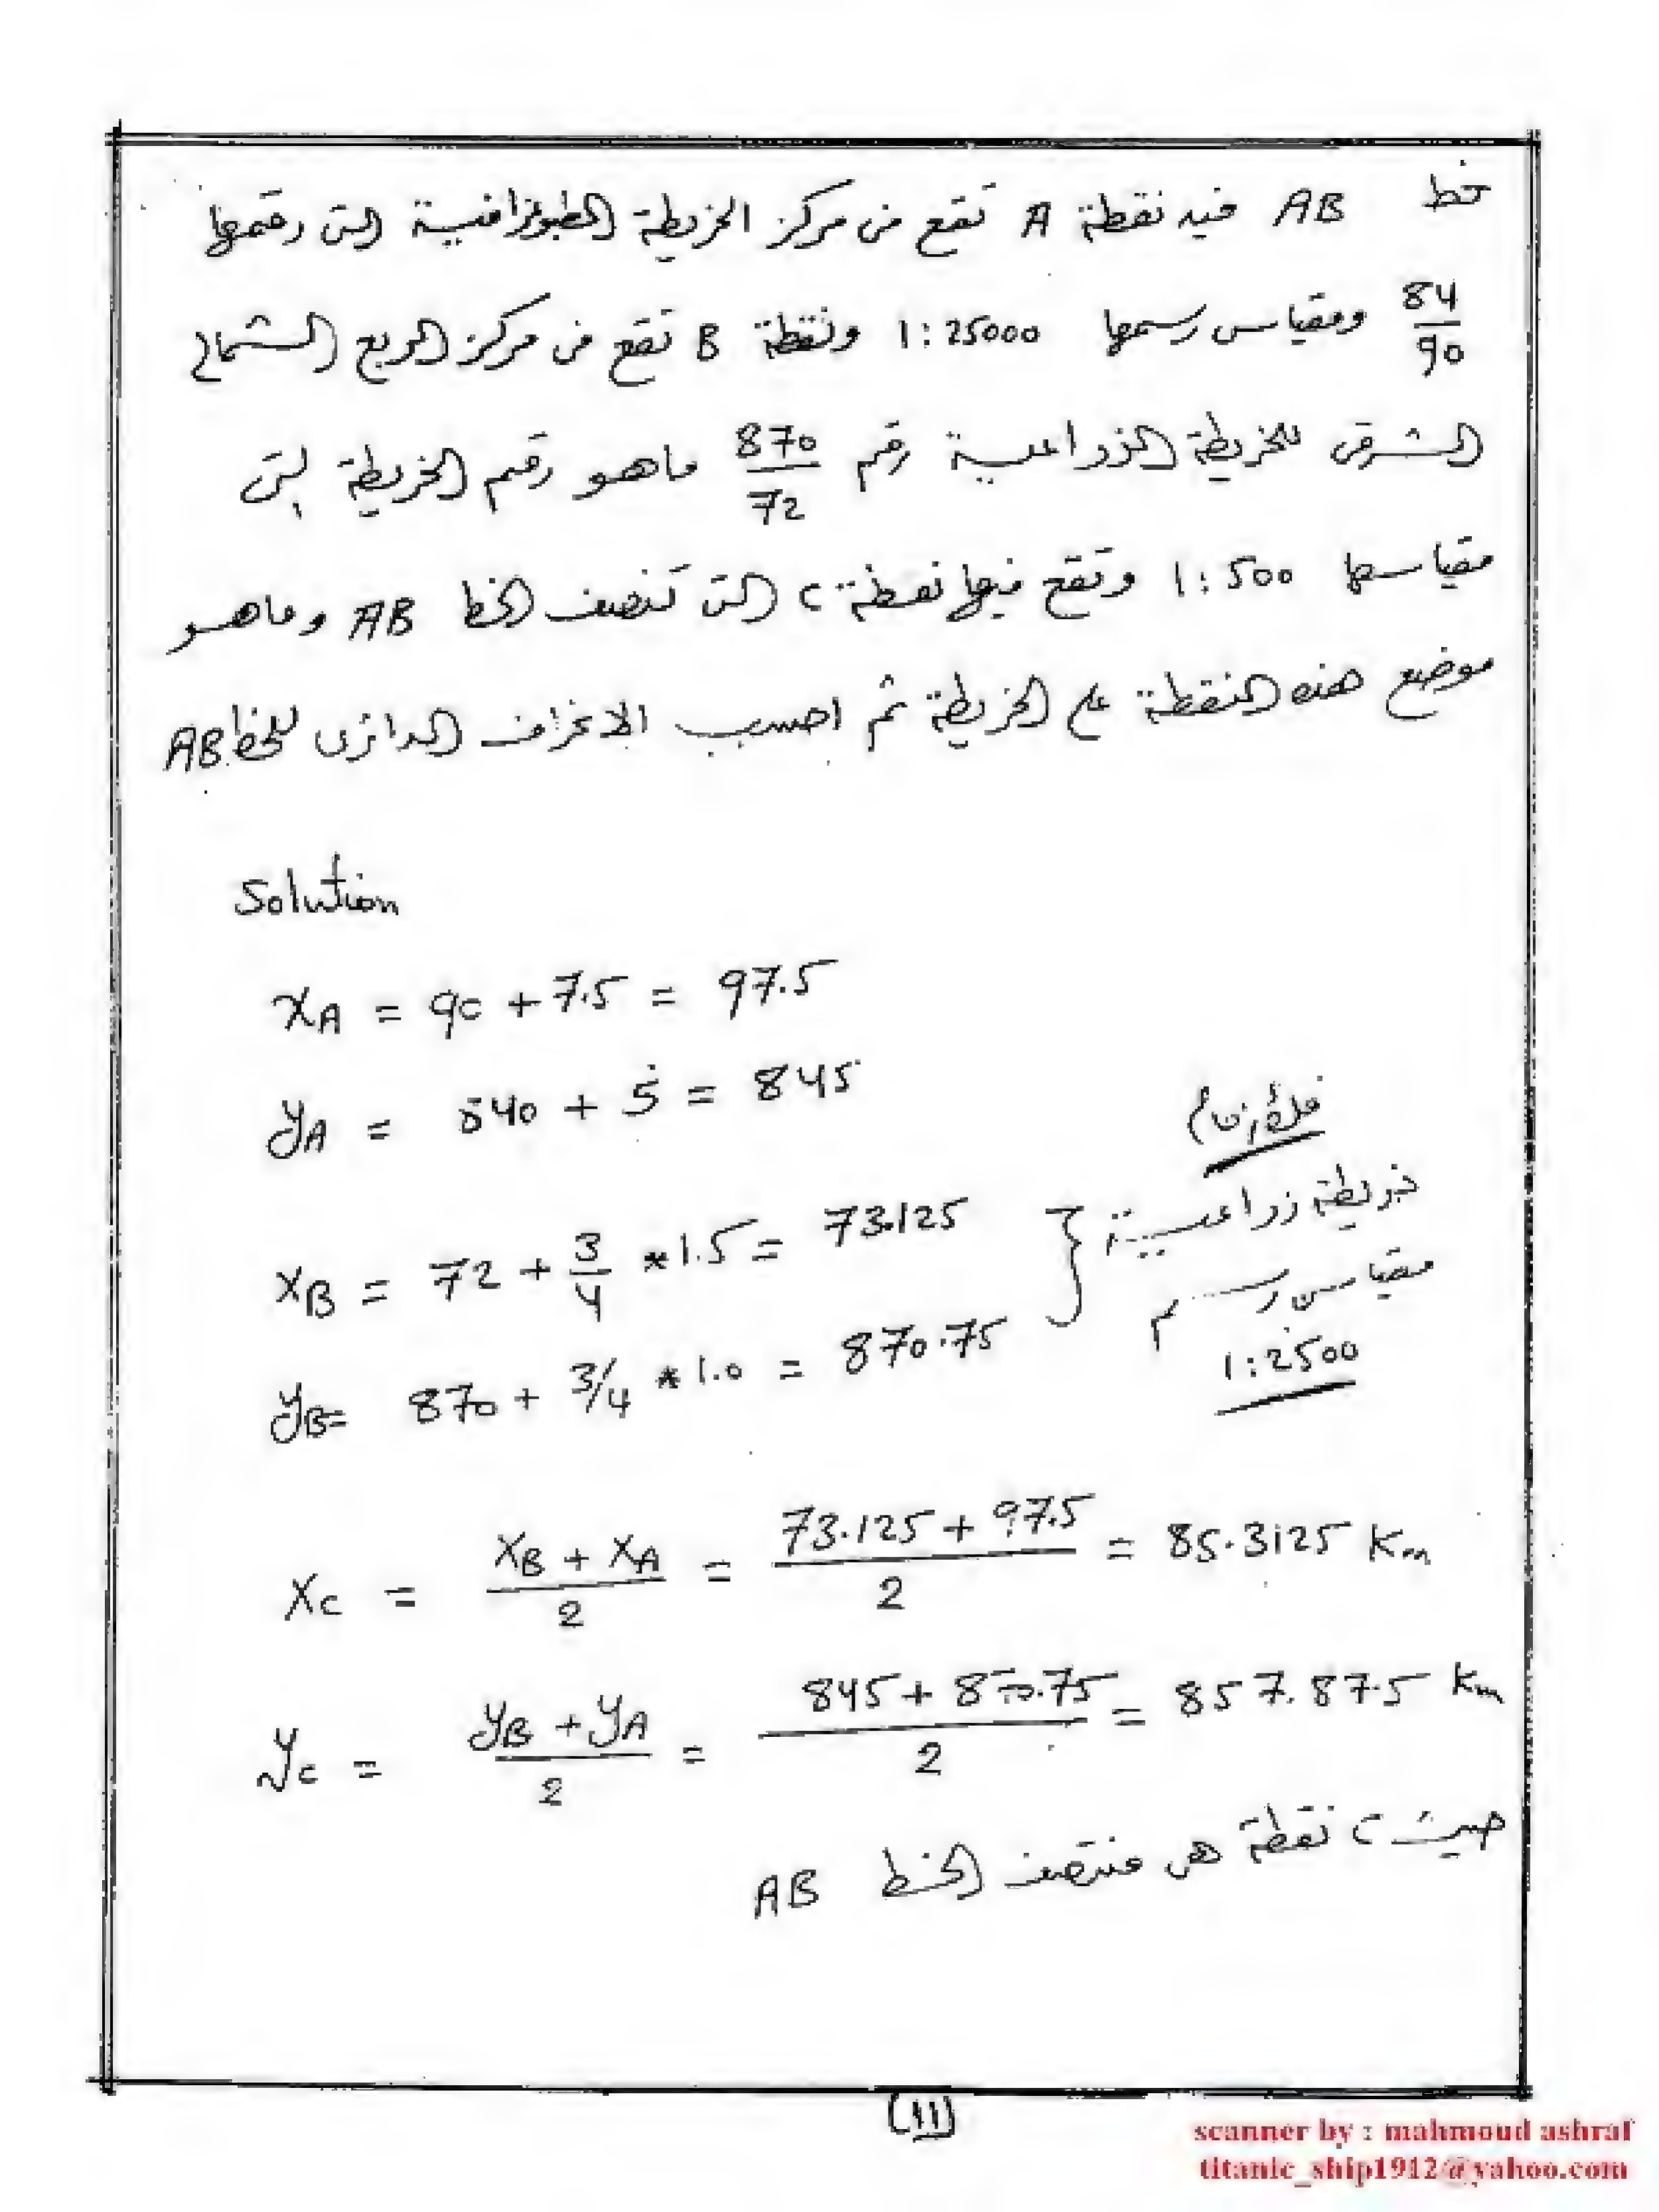 خط AB فيه نقطة A تقع في مركز الخريطة الطبوغرافية التى رقمها
84/90 ومقياس رسمها 1:25000 ونقطة B تقع في مركز الربع الشمالى
الشرقى للخريطة الزراعية رقم 870/72 ماهو رقم الخريطة التى
مقياسها 1:500 وتقع فيها نقطة C التى تنصف الخط AB وماهو
موضع هذه النقطة على الخريطة ثم احسب الانحراف الدائرى للخط AB
Solution
xA = 90 + 7.5 = 97.5
yA = 840 + 5 = 845
xB = 72 + 3/4 * 1.5 = 73.125
yB = 870 + 3/4 * 1.0 = 870.75
خريطة زراعية
مقياس رسم
1:2500
xC = (xB + xA)/2 = (73.125 + 97.5)/2 = 85.3125 Km
yC = (yB + yA)/2 = (845 + 870.75)/2 = 857.875 Km
حيث C نقطة هى منتصف الخط AB
(11)
scanner by : mahmoud ashraf
titanic_ship1912@yahoo.com